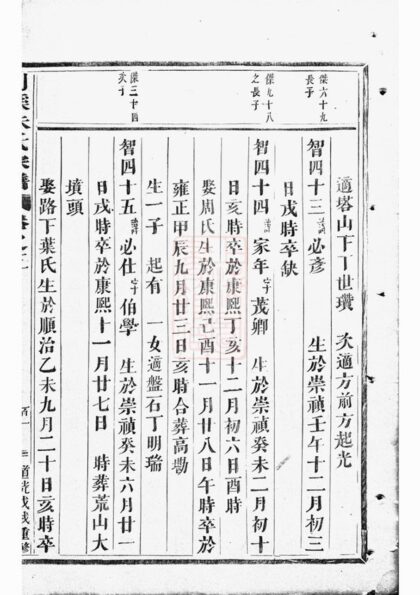 適塔山下丁世瓚 次適方前方起光
傑六十九
長子
智四十三 諱必彥 生於崇禎壬午十二月初三
日戌時卒缺
傑九十八
之長子
智四十四 諱家年 字茂卿 生於崇禎癸未二月初十
日亥時卒於康熙丁亥十二月初六日酉時
娶周氏生於康熙己酉十一月廿八日午時卒於
雍正甲辰九月廿三日亥時合葬高塢
生一子 起有 一女適盤石丁明瑞
傑三十四
次子
智四十五 諱必仕 字伯學 生於崇禎癸未六月廿一
日戌時卒於康熙十一月廿七日 時葬荒山大
墳頭
娶路下葉氏生於順治乙未九月二十日亥時卒
道光戊戌重修